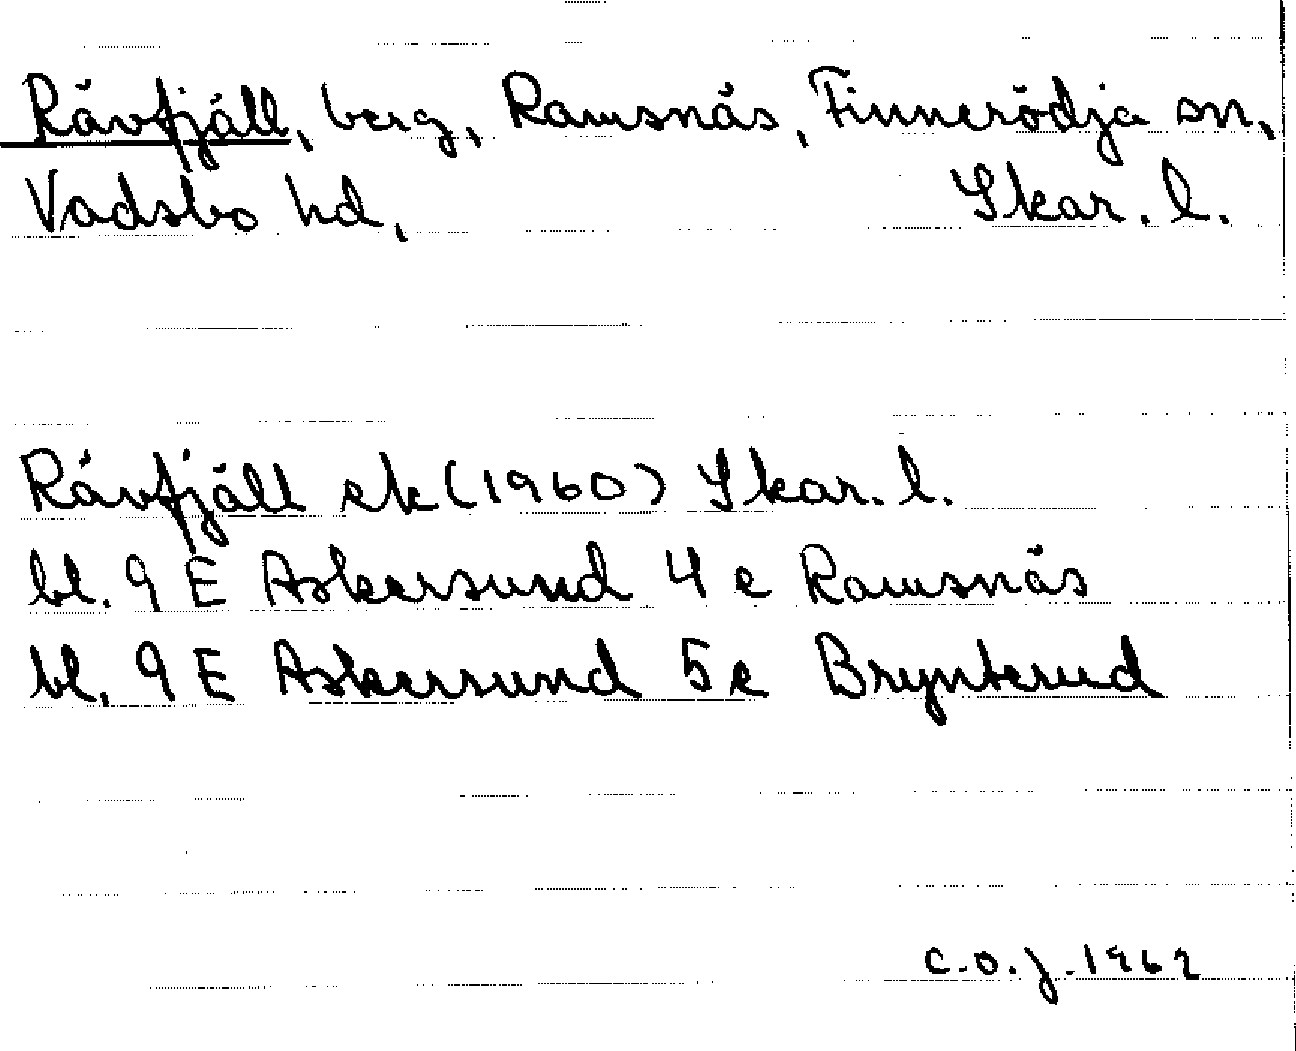 Rävfjäll, berg, Ramsnäs, Finnerödja sn,
Vadsbo hd, Skar. l.
Rävfjäll ek (1960) Skar. l.
bl. 9 E Askersund 4 e Ramsnäs
bl. 9 E Askersund 5 e Brynterud
C.O.J. 1962